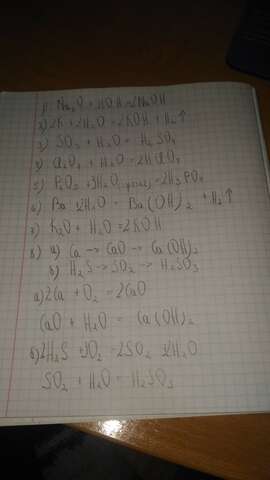 1) Na₂O + HOH = 2NaOH
2) 2K + 2H₂O = 2KOH + H₂↑
3) SO₃ + H₂O = H₂SO₄
4) Cl₂O₇ + H₂O = 2HClO₄
5) P₂O₅ + 3H₂O = 2H₃PO₄
6) Ba + 2H₂O = Ba(OH)₂ + H₂↑
7) K₂O + H₂O = 2KOH
8) а) Ca → CaO → Ca(OH)₂
б) H₂S → SO₂ → H₂SO₃
а) 2Ca + O₂ = 2CaO
CaO + H₂O = Ca(OH)₂
б) 2H₂S + 3O₂ = 2SO₂ + 2H₂O
SO₂ + H₂O = H₂SO₃